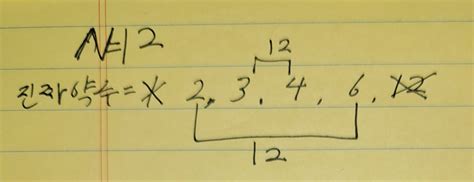 N=12
12
진짜약수= 1 2, 3, 4, 6, 12
12